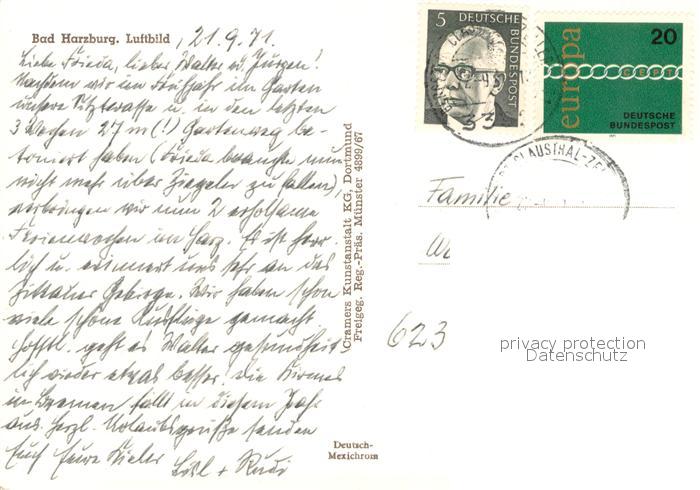 Bad Harzburg. Luftbild, 21.9.71.
Liebe Frieda, lieber Walter u. Jürgen!
Nachdem wir im Frühjahr im Garten
unsere u. in den letzten
3 Wochen 27 m (!) Gartenweg be-
toniert haben (Frieda braucht nun
nicht mehr über Ziegeler zu fallen),
verbringen wir nun 2 erholsame
Ferienwochen im Harz. Es ist herr-
lich u. erinnert uns sehr an das
Zittauer Gebirge. Wir haben schon
viele schöne Ausflüge gemacht
Hofftl. geht es Walter gesundheit-
lich wieder etwas besser. Die Kirmes
in Bremen fällt in diesem Jahr
aus. Herzl. Urlaubsgrüße senden
Euch Eure Kieler + Rudi
Cramers Kunstanstalt KG, Dortmund
Freigeg. Reg.-Präs. Münster 4899/67
Deutsch-
Mexichrom
5 DEUTSCHE
BUNDESPOST
europa
20
CEPT
DEUTSCHE
BUNDESPOST
CLAUSTHAL-ZE
Familie
623
privacy protection
Datenschutz